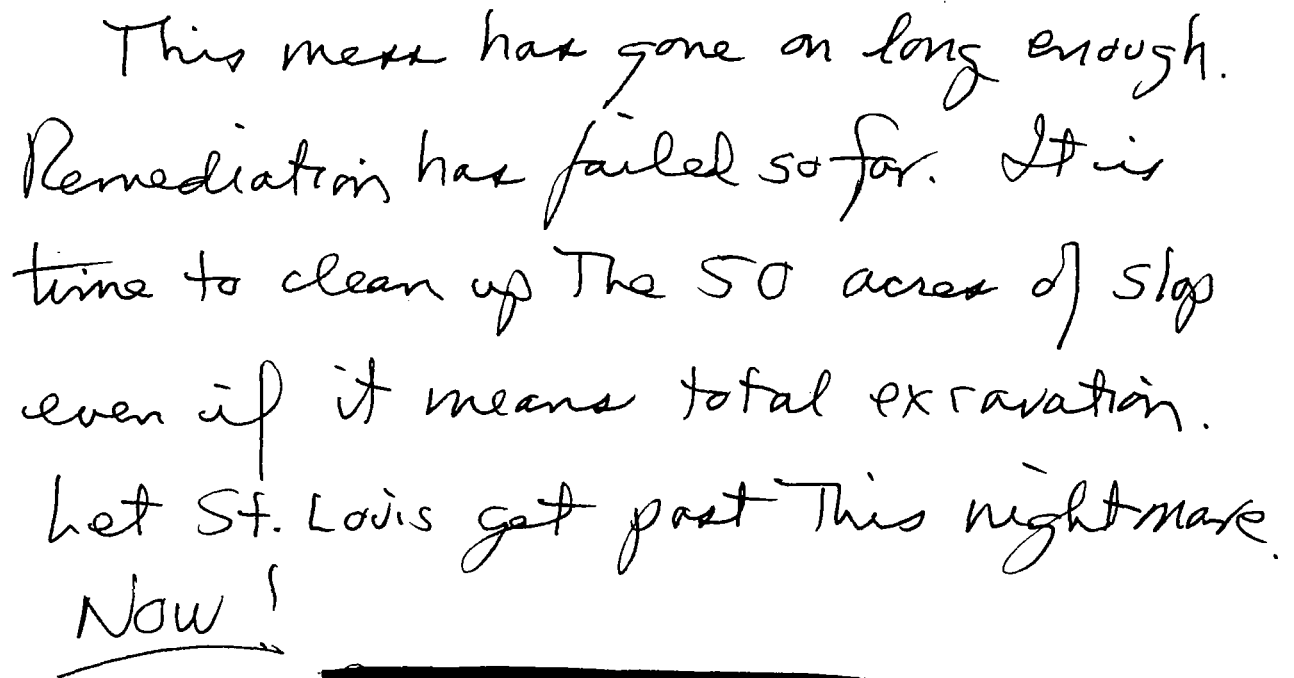 This mess has gone on long enough.
Remediation has failed so far. It is
time to clean up The 50 acres of slop
even if it means total excavation.
Let St. Louis get past This nightmare.
Now!